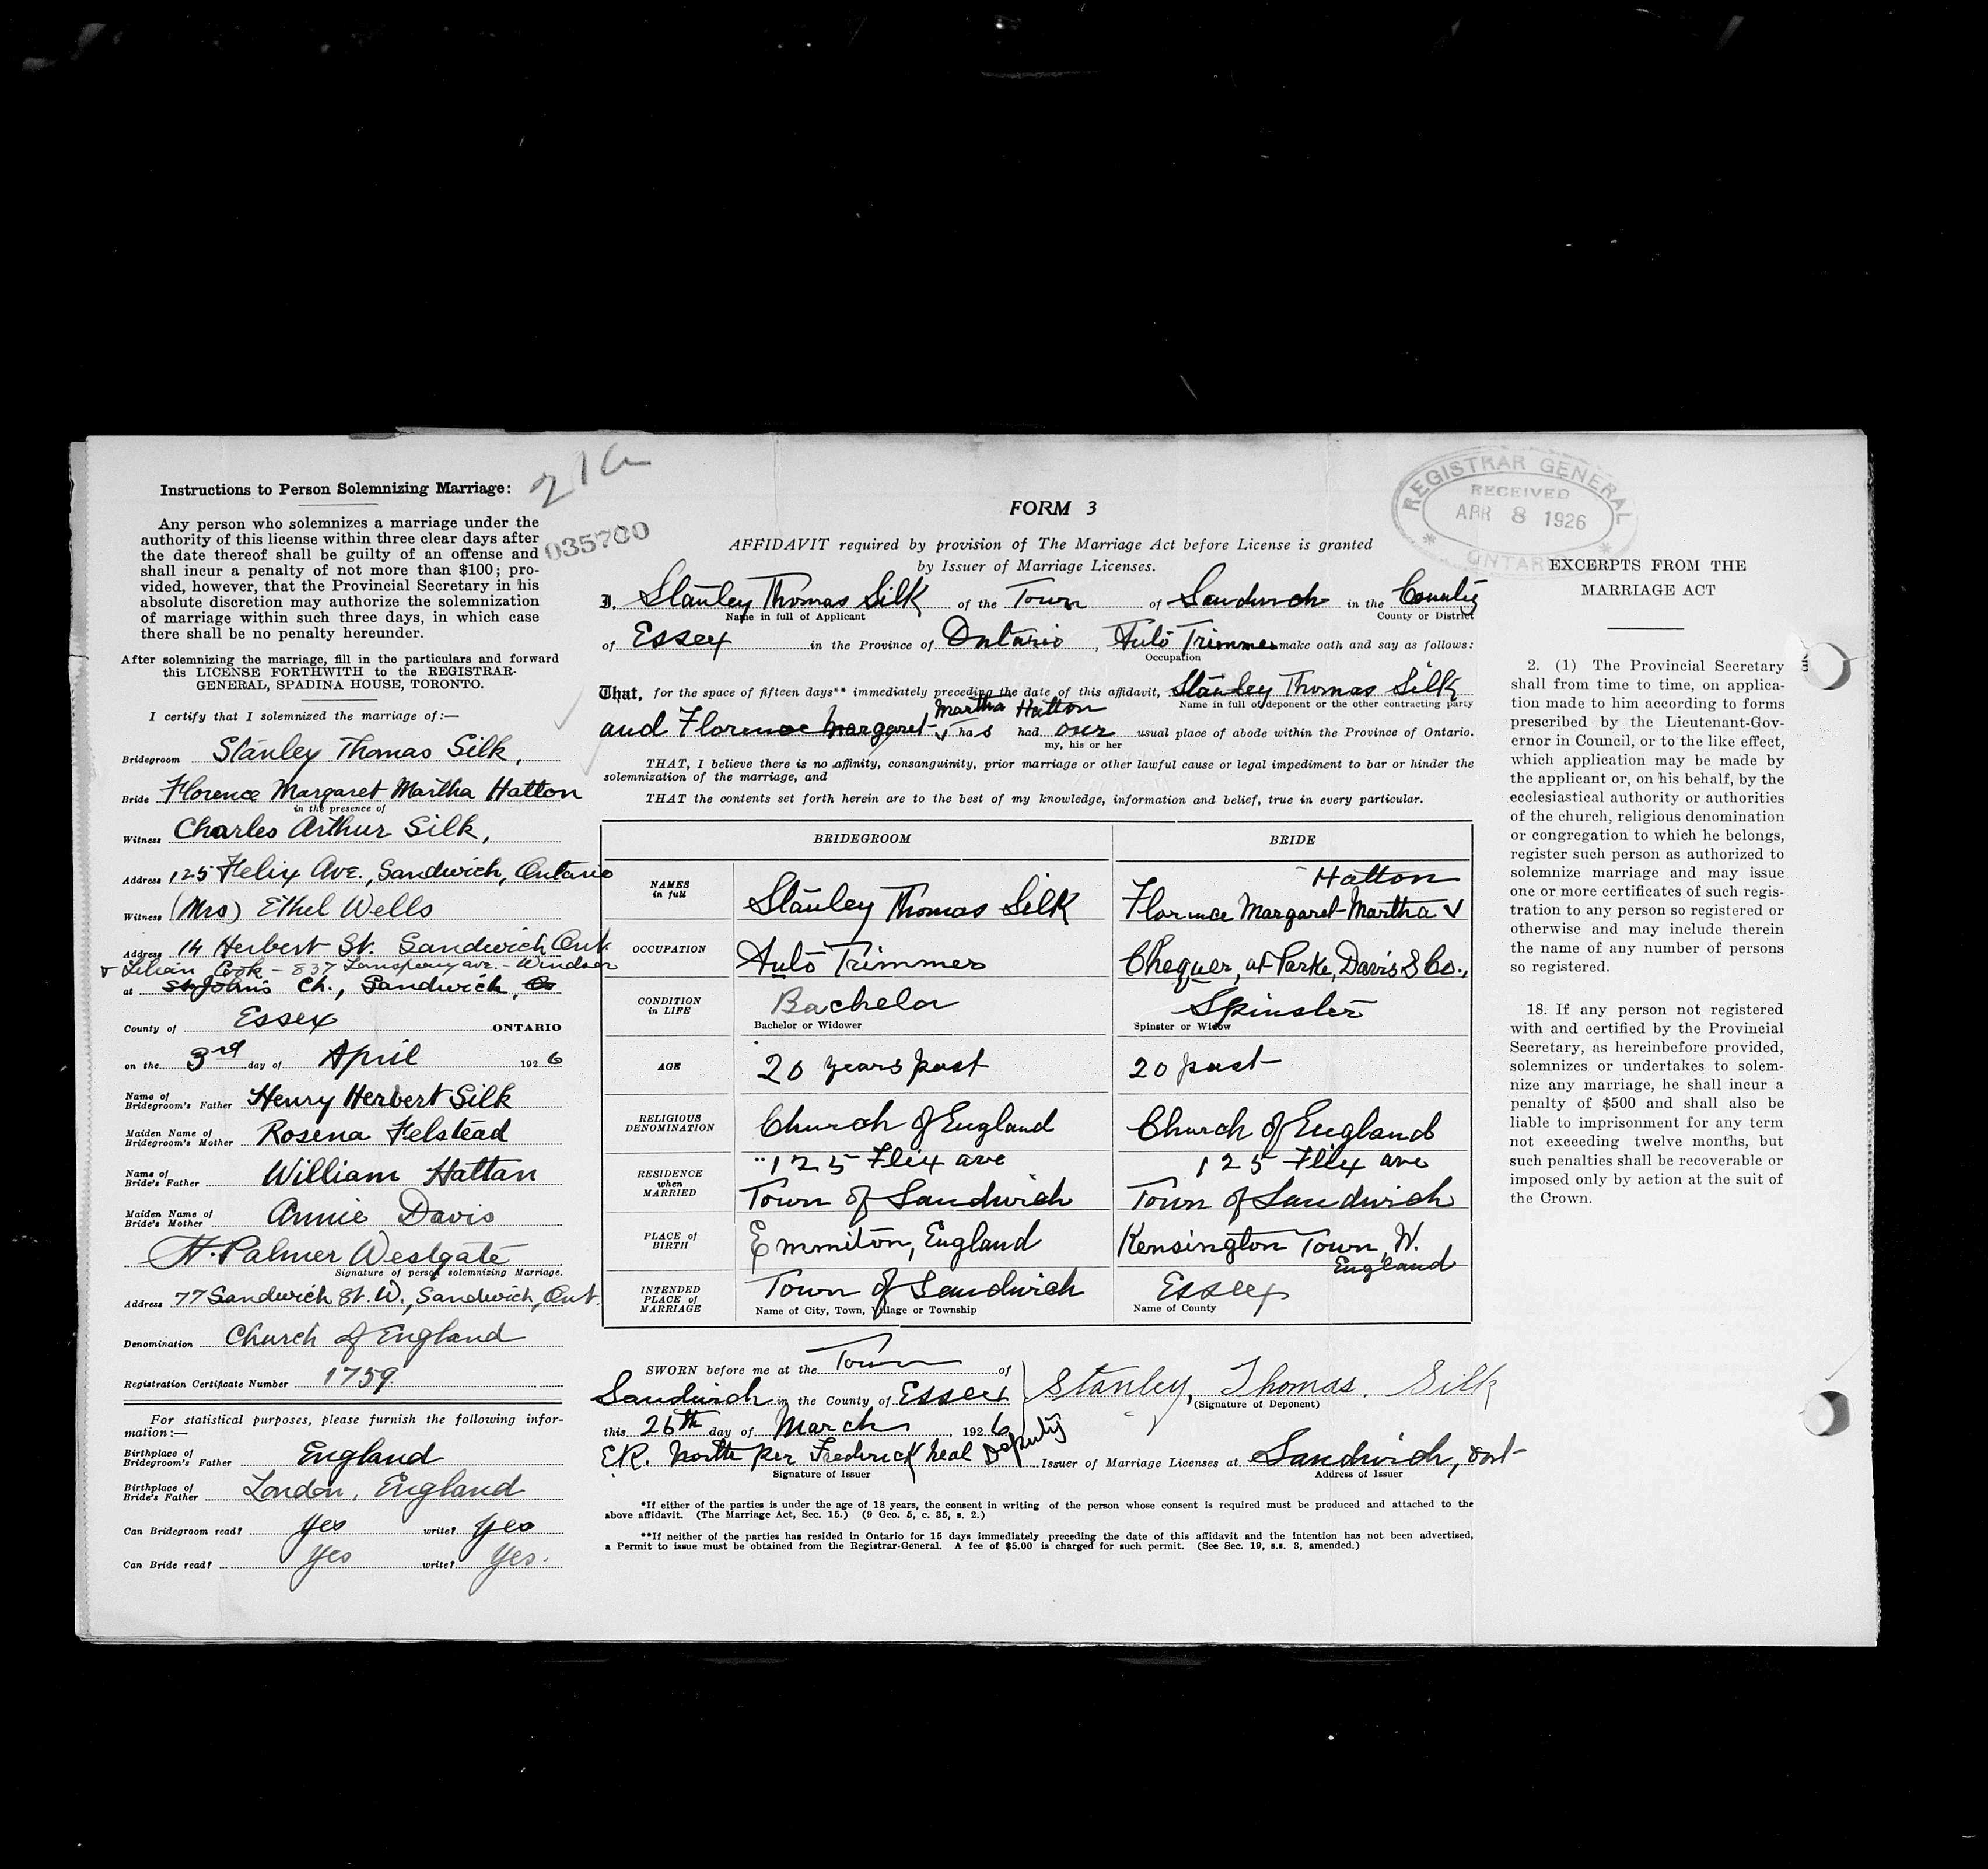 21a
035700
Instructions to Person Solemnizing Marriage:
Any person who solemnizes a marriage under the
authority of this license within three clear days after
the date thereof shall be guilty of an offense and
shall incur a penalty of not more than $100; pro-
vided, however, that the Provincial Secretary in his
absolute discretion may authorize the solemnization
of marriage within such three days, in which case
there shall be no penalty hereunder.
After solemnizing the marriage, fill in the particulars and forward
this LICENSE FORTHWITH to the REGISTRAR-
GENERAL, SPADINA HOUSE, TORONTO.
I certify that I solemnized the marriage of:—
Bridegroom Stanley Thomas Silk,
Bride Florence Margaret Martha Hatton
in the presence of
Witness Charles Arthur Silk,
Address 125 Felix Ave., Sandwich, Ontario
Witness (Mrs) Ethel Wells
Address 14 Herbert St. Sandwich Ont.
Lilian Cook - 837 ave. - Windsor
at St John's Ch., Sandwich,
County of Essex ONTARIO
on the 3rd day of April 1926
Name of
Bridegroom's Father Henry Herbert Silk
Maiden Name of
Bridegroom's Mother Rosena Felstead
Name of
Bride's Father William Hattan
Maiden Name of
Bride's Mother Annie Davis
H. Palmer Westgate
Signature of person solemnizing Marriage.
Address 77 Sandwich St. W., Sandwich, Ont.
Denomination Church of England
Registration Certificate Number 1759
For statistical purposes, please furnish the following infor-
mation:—
Birthplace of
Bridegroom's Father England
Birthplace of
Bride's Father London, England
Can Bridegroom read? yes write? yes
Can Bride read? yes write? yes.
FORM 3
AFFIDAVIT required by provision of The Marriage Act before License is granted
by Issuer of Marriage Licenses.
I, Stanley Thomas Silk of the Town of Sandwich in the County
Name in full of Applicant County or District
of Essex in the Province of Ontario, Auto Trimmer make oath and say as follows:
Occupation
That, for the space of fifteen days** immediately preceding the date of this affidavit, Stanley Thomas Silk
Name in full of deponent or the other contracting party
Martha Hatton
and Florence Margaret has had our usual place of abode within the Province of Ontario.
my, his or her
THAT, I believe there is no affinity, consanguinity, prior marriage or other lawful cause or legal impediment to bar or hinder the
solemnization of the marriage, and
THAT the contents set forth herein are to the best of my knowledge, information and belief, true in every particular.
BRIDEGROOM BRIDE
Hatton
NAMES in full Stanley Thomas Silk Florence Margaret Martha
OCCUPATION Auto Trimmer Chequer, at Parke, Davis & Co.,
CONDITION in LIFE Bachelor Spinster
Bachelor or Widower Spinster or Widow
AGE 20 years past 20 past
RELIGIOUS DENOMINATION Church of England Church of England
125 Flix ave 125 Flix ave
RESIDENCE when MARRIED Town of Sandwich Town of Sandwich
PLACE of BIRTH Emmiton, England Kensington Town, W.
England
INTENDED PLACE of MARRIAGE Town of Sandwich Essex
Name of City, Town, Village or Township Name of County
SWORN before me at the Town of
Sandwich in the County of Essex Stanley, Thomas. Silk
(Signature of Deponent)
this 26th day of March, 1926
E.R. North per Frederick Neal Deputy Issuer of Marriage Licenses at Sandwich, Ont
Signature of Issuer Address of Issuer
*If either of the parties is under the age of 18 years, the consent in writing of the person whose consent is required must be produced and attached to the
above affidavit. (The Marriage Act, Sec. 15.) (9 Geo. 5, c. 35, s. 2.)
**If neither of the parties has resided in Ontario for 15 days immediately preceding the date of this affidavit and the intention has not been advertised,
a Permit to issue must be obtained from the Registrar-General. A fee of $5.00 is charged for such permit. (See Sec. 19, s.s. 3, amended.)
REGISTRAR GENERAL
RECEIVED
APR 8 1926
ONTARIO
EXCERPTS FROM THE
MARRIAGE ACT
2. (1) The Provincial Secretary
shall from time to time, on applica-
tion made to him according to forms
prescribed by the Lieutenant-Gov-
ernor in Council, or to the like effect,
which application may be made by
the applicant or, on his behalf, by the
ecclesiastical authority or authorities
of the church, religious denomination
or congregation to which he belongs,
register such person as authorized to
solemnize marriage and may issue
one or more certificates of such regis-
tration to any person so registered or
otherwise and may include therein
the name of any number of persons
so registered.
18. If any person not registered
with and certified by the Provincial
Secretary, as hereinbefore provided,
solemnizes or undertakes to solem-
nize any marriage, he shall incur a
penalty of $500 and shall also be
liable to imprisonment for any term
not exceeding twelve months, but
such penalties shall be recoverable or
imposed only by action at the suit of
the Crown.